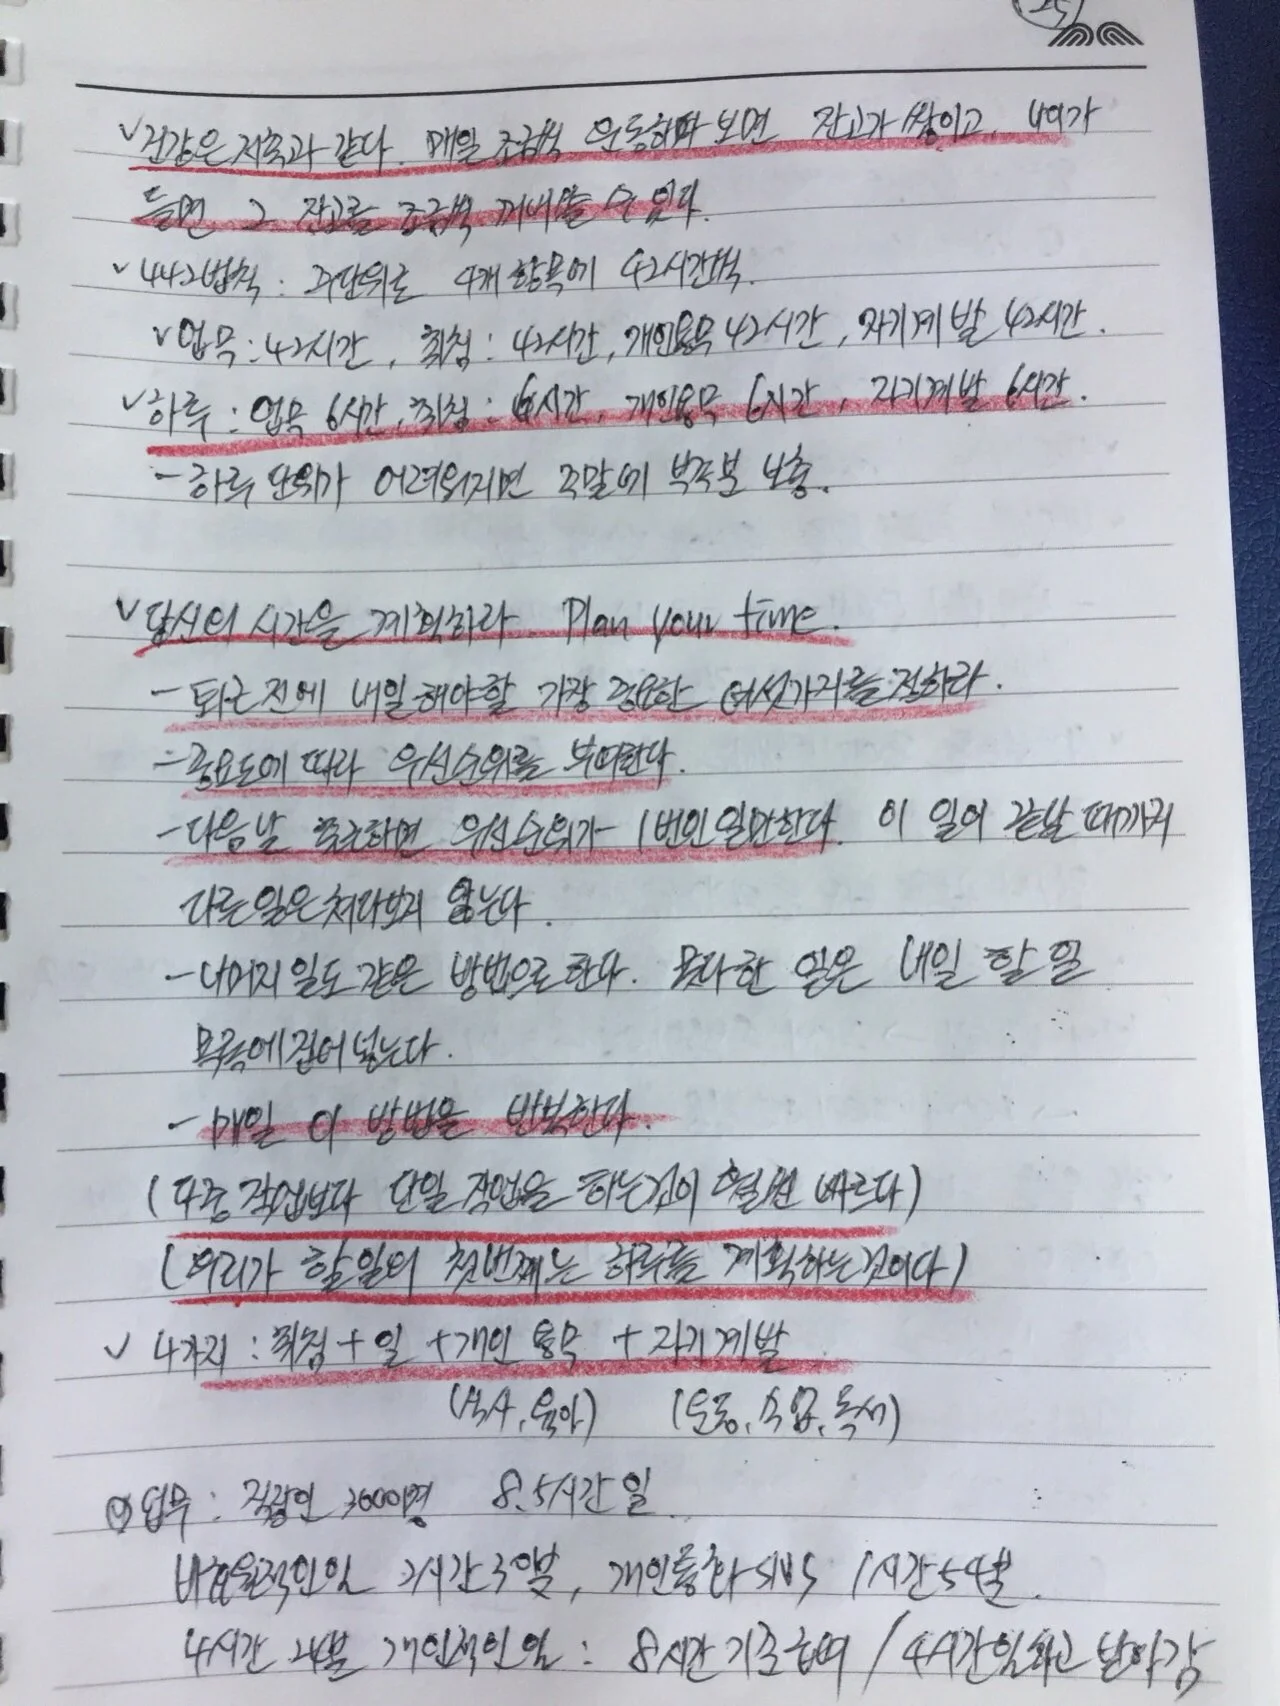 25
✓건강은 저축과 같다. 매일 조금씩 운동하다 보면 잔고가 쌓이고, 나이가
들면 그 잔고를 조금씩 꺼내쓸 수 있다.
✓442법칙 : 주단위로 4개 항목에 42시간씩.
✓업무 : 42시간, 취침 : 42시간, 개인용무 42시간, 자기계발 42시간.
✓하루 : 업무 6시간, 취침 : 6시간, 개인용무 6시간, 자기계발 6시간.
- 하루 단위가 어려워지면 주말에 부족분 보충.
✓당신의 시간을 계획하라. Plan your time.
- 퇴근 전에 내일 해야할 가장 중요한 여섯가지를 정하라.
- 중요도에 따라 우선순위를 부여한다.
- 다음날 출근하면 우선순위가 1번인 일만한다. 이 일이 끝날 때까지
다른 일은 쳐다보지 않는다.
- 나머지 일도 같은 방법으로 한다. 못다한 일은 내일 할 일
목록에 집어 넣는다.
- 매일 이 방법을 반복한다.
(다중 작업보다 단일 작업을 하는것이 훨씬 빠르다)
(우리가 할일의 첫번째는 하루를 계획하는것이다)
✓ 4가지 : 취침 + 일 + 개인 용무 + 자기계발
(식사, 육아) (운동, 수업, 독서)
업무 : 직장인 3600명 8.5시간 일
비효율적인일 2시간 30분, 개인통화 SNS 1시간 54분.
4시간 24분 개인적인 일 : 8시간 기준 급여 / 4시간일하고 받아감